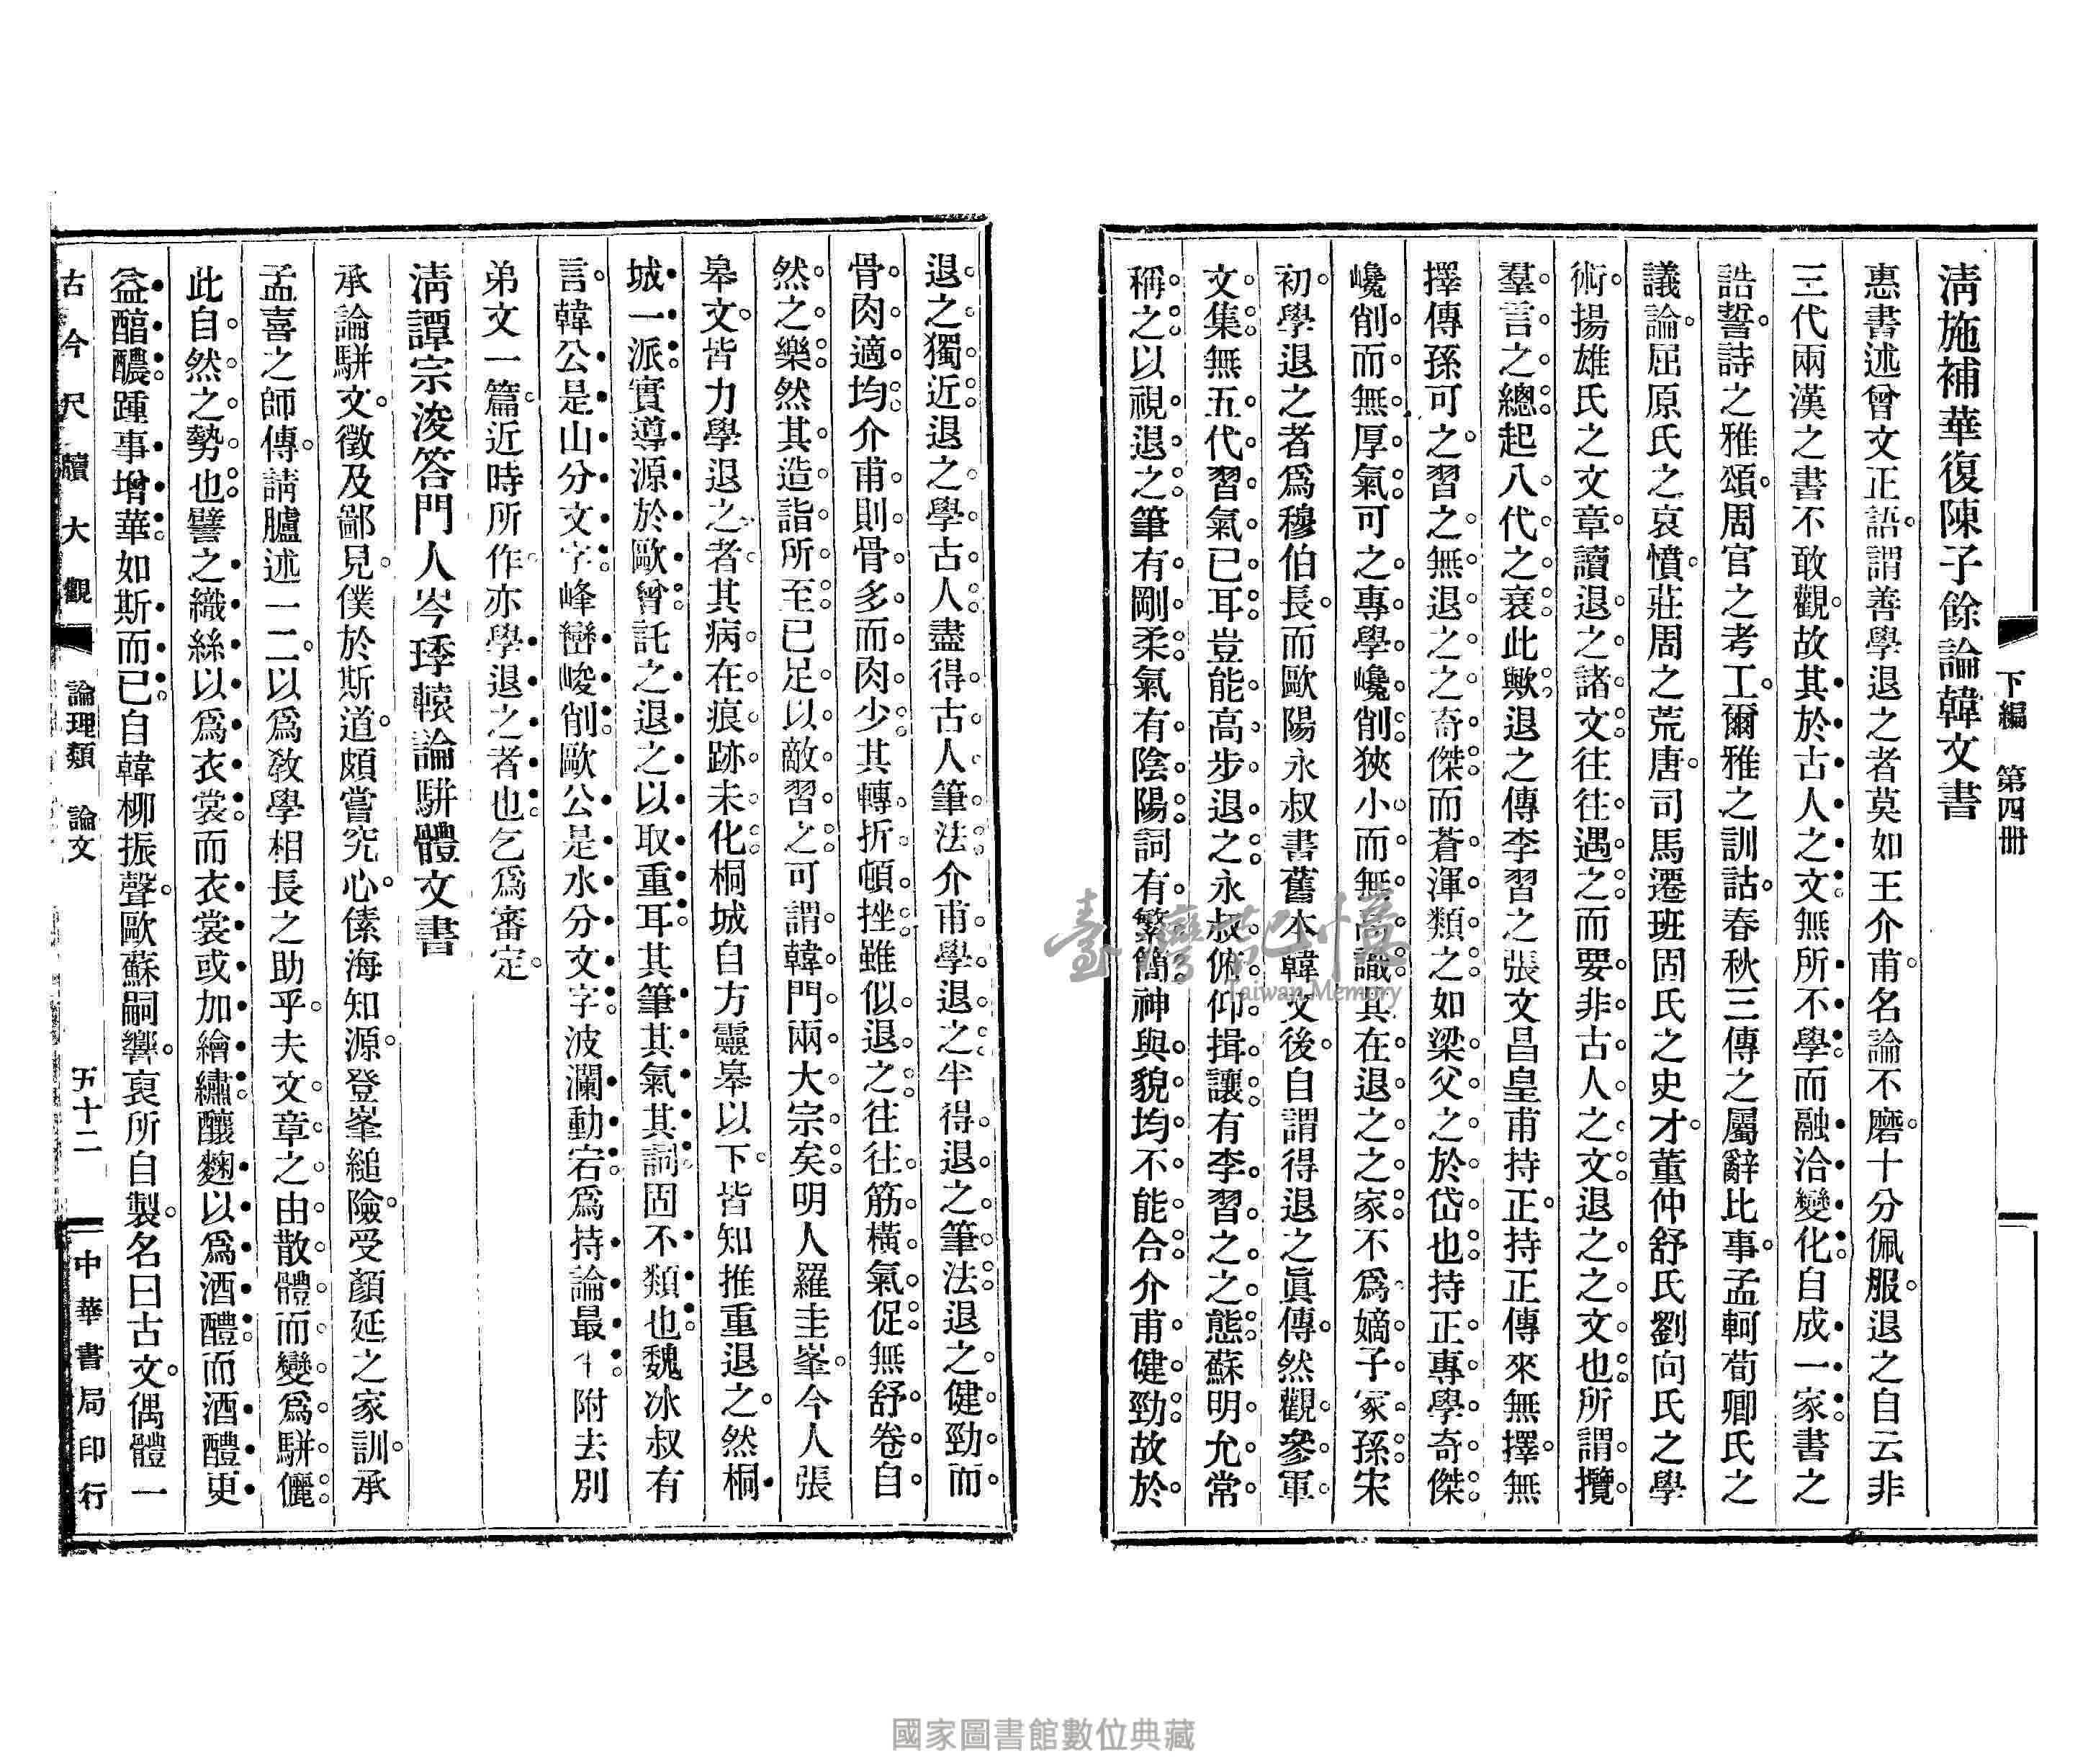 下編　第四冊
清施補華復陳子餘論韓文書
惠書述曾文正語。謂善學退之者莫如王介甫。名論不磨。十分佩服。退之自云非
三代兩漢之書不敢觀。故其於古人之文無所不學。而融洽變化。自成一家。書之
誥誓。詩之雅頌。周官之考工。爾雅之訓詁。春秋三傳之屬辭比事。孟軻荀卿氏之
議論。屈原氏之哀憤。莊周之荒唐。司馬遷班固氏之史才。董仲舒氏劉向氏之學
術。揚雄氏之文章。讀退之諸文。往往遇之。而要非古人之文。退之之文也。所謂攬
羣言之總。起八代之衰。此歟。退之傳李習之張文昌皇甫持正。持正傳來無擇。無
擇傳孫可之。習之無退之之奇傑。而蒼渾類之。如梁父之於岱也。持正專學奇傑。
巉削而無厚氣。可之專學巉削。狹小而無高識。其在退之之家。不爲嫡子冢孫。宋
初。學退之者爲穆伯長。而歐陽永叔書舊本韓文後。自謂得退之眞傳。然觀參軍
文集。無五代習氣已耳。豈能高步退之。永叔俯仰揖讓。有李習之之態。蘇明允常
稱之。以視退之之筆有剛柔。氣有陰陽。詞有繁簡。神與貌均不能合。介甫健勁。故於
退之獨近。退之學古人。盡得古人筆法。介甫學退之。半得退之筆法。退之健勁而
骨肉適均。介甫則骨多而肉少。其轉折頓挫。雖似退之。往往筋橫氣促。無舒卷自
然之樂。然其造詣所至。已足以敵習之。可謂韓門兩大宗矣。明人羅圭峯。今人張
皋文。皆力學退之者。其病在痕跡未化。桐城自方靈皋以下。皆知推重退之。然桐
城一派。實導源於歐曾。託之退之以取重耳。其筆其氣其詞固不類也。魏冰叔有
言。韓公是山分文字。峰巒峻削。歐公是水分文字。波瀾動宕。爲持論最。附去別
弟文一篇。近時所作。亦學退之者也。乞爲審定。
清譚宗浚答門人岑琫轅論駢體文書
承論駢文。徵及鄙見。僕於斯道。頗嘗究心。傃海知源。登峯縋險。受顏延之家訓。承
孟喜之師傳。請臚述一二。以爲敎學相長之助乎。夫文章之由散體而變爲駢儷。
此自然之勢也。譬之織絲以爲衣裳。而衣裳或加繪繡。釀麴以爲酒醴。而酒醴更
益醞醲。踵事增華。如斯而已。自韓柳振聲。歐蘇嗣響。裒所自製。名曰古文。偶體一
古今尺牘大觀　論理類　論文　五十二　中華書局印行
臺灣記憶
Taiwan Memory
國家圖書館數位典藏